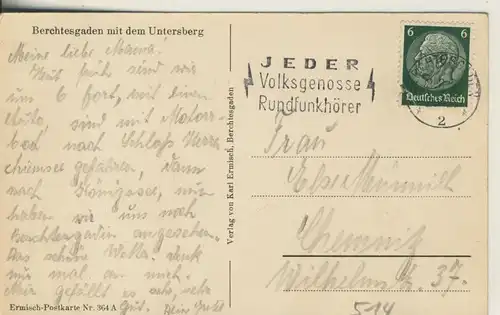 Berchtesgaden mit dem Untersberg
Meine liebe Mama!
Heut früh sind wir
um 6 fort, mit einem
Auto, sind mit Motor-
boot nach Schloss Herren-
chiemsee gefahren, dann
nach Königssee, nun
haben wir uns noch
Berchtesgaden angesehen.
Das schöne Wetter. denk
nur mal an mich.
Mir gefällt es sehr, sehr
gut. Dein
Ermisch-Postkarte Nr. 364 A
Verlag von Karl Ermisch, Berchtesgaden
JEDER
Volksgenosse
Rundfunkhörer
6 6
Deutsches Reich
2
Frau
Else
Chemnitz
Wilhelmstr. 37.
514